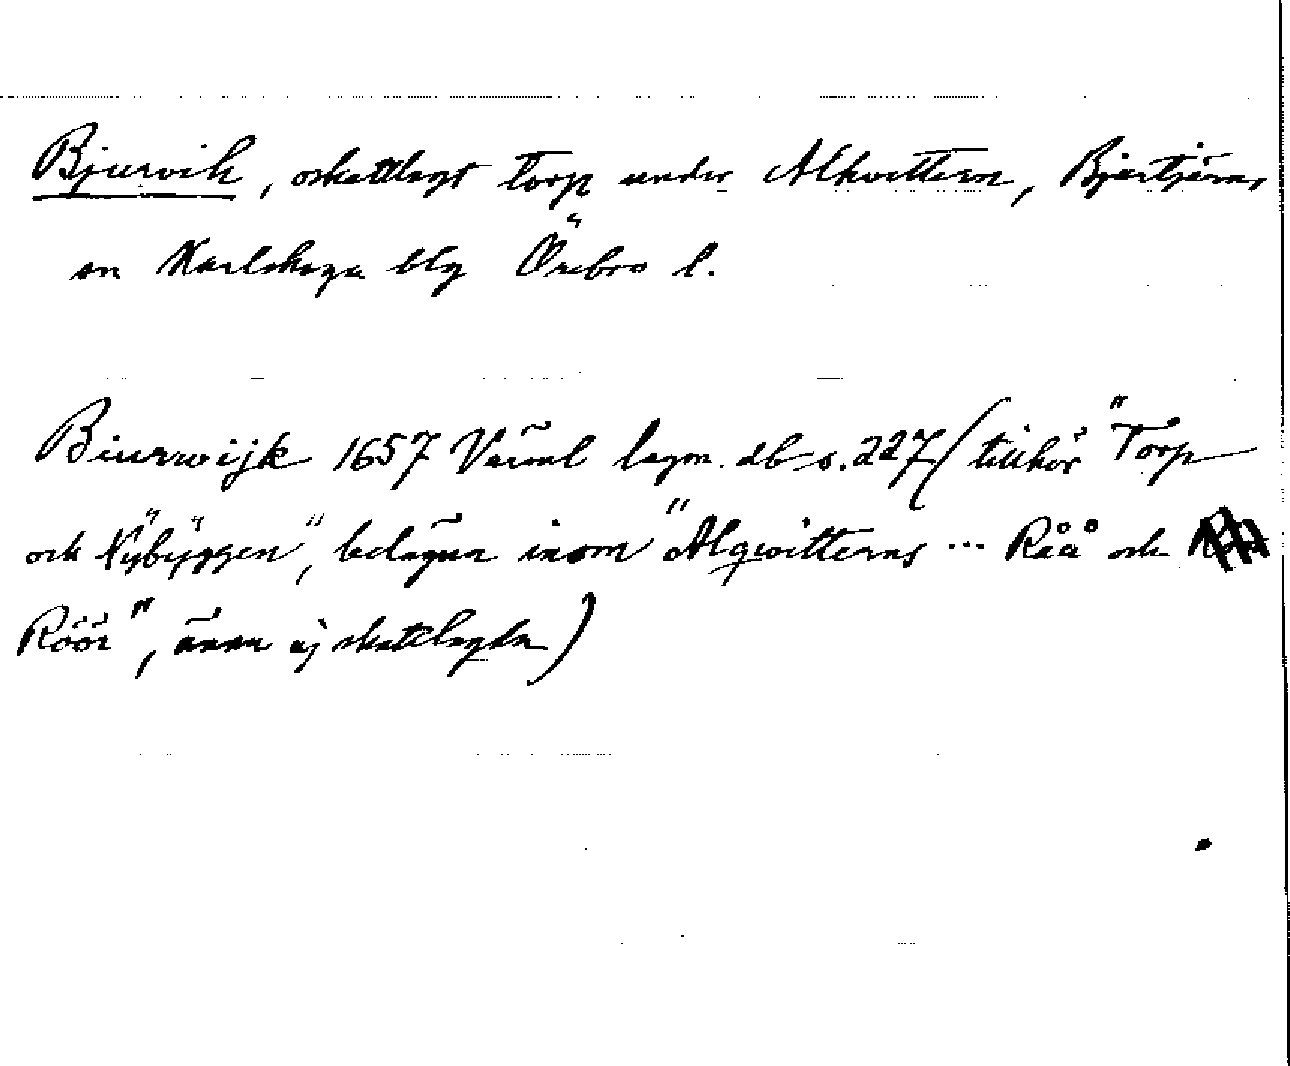 Bjurvik, oskattlagt torp under Alkvettern, Bjurtjärns
sn Karlskoga blg Örebro l.
Biurwijk 1657 Värml lagm. db s. 227 (tillhör "Torp
och Nÿbÿggen", belägna inom "Alqwitterns ... Råå och
Röör", ännu ej skattlagda)